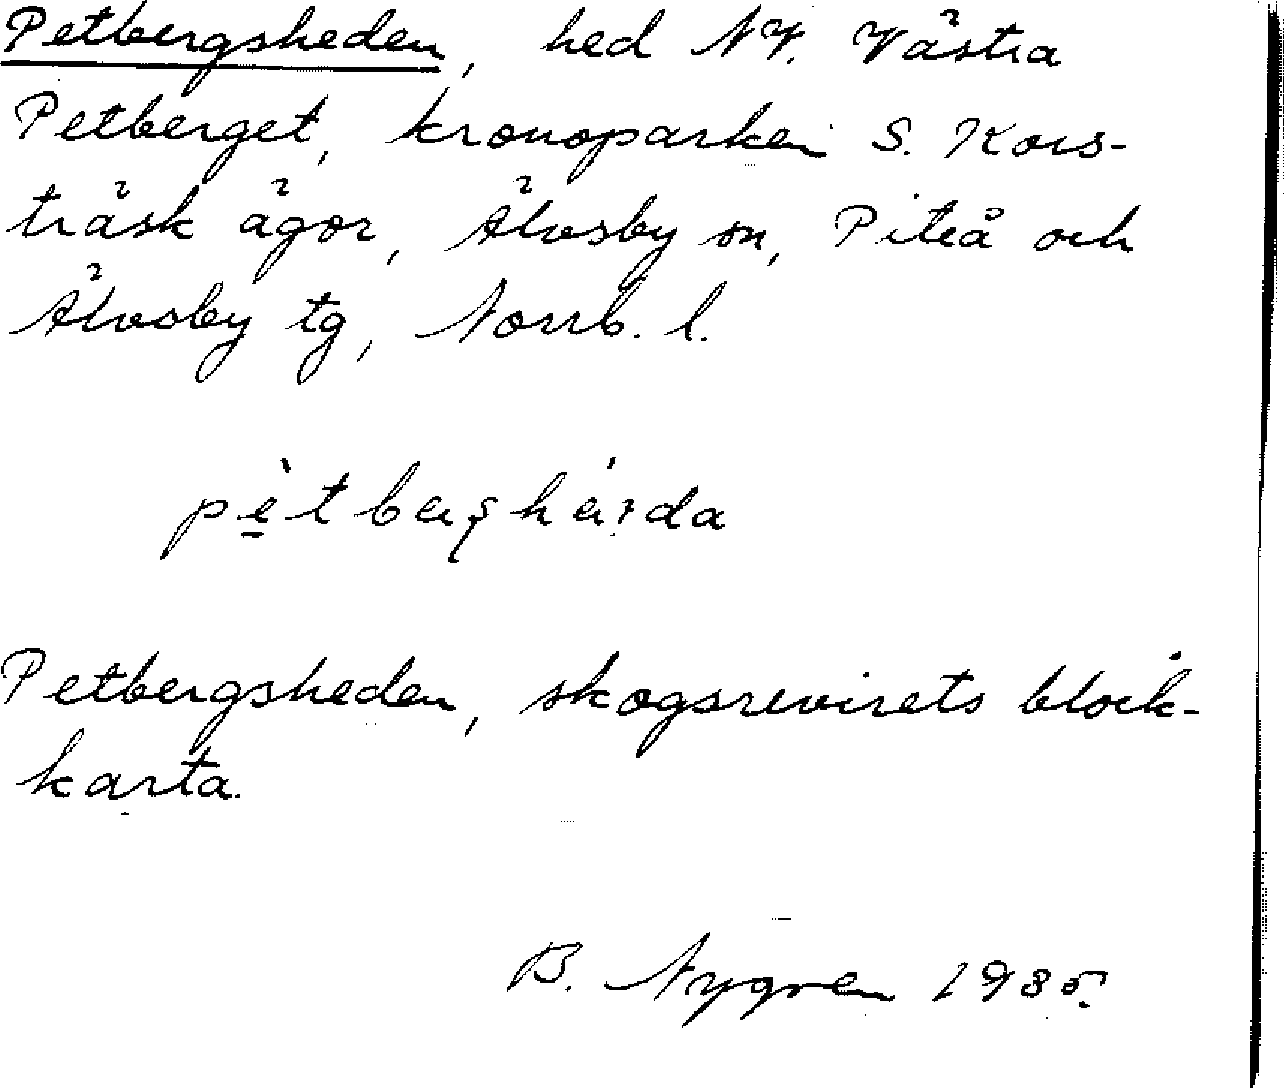 Petbergsheden, hed NV. Västra
Petberget, kronoparken S. Kors-
träsk ägor, Älvsby sn, Piteå och
Älvsby tg, Norrb. l.
Petbergsheden, skogsrevirets block-
karta.
B. Nygren 1935.